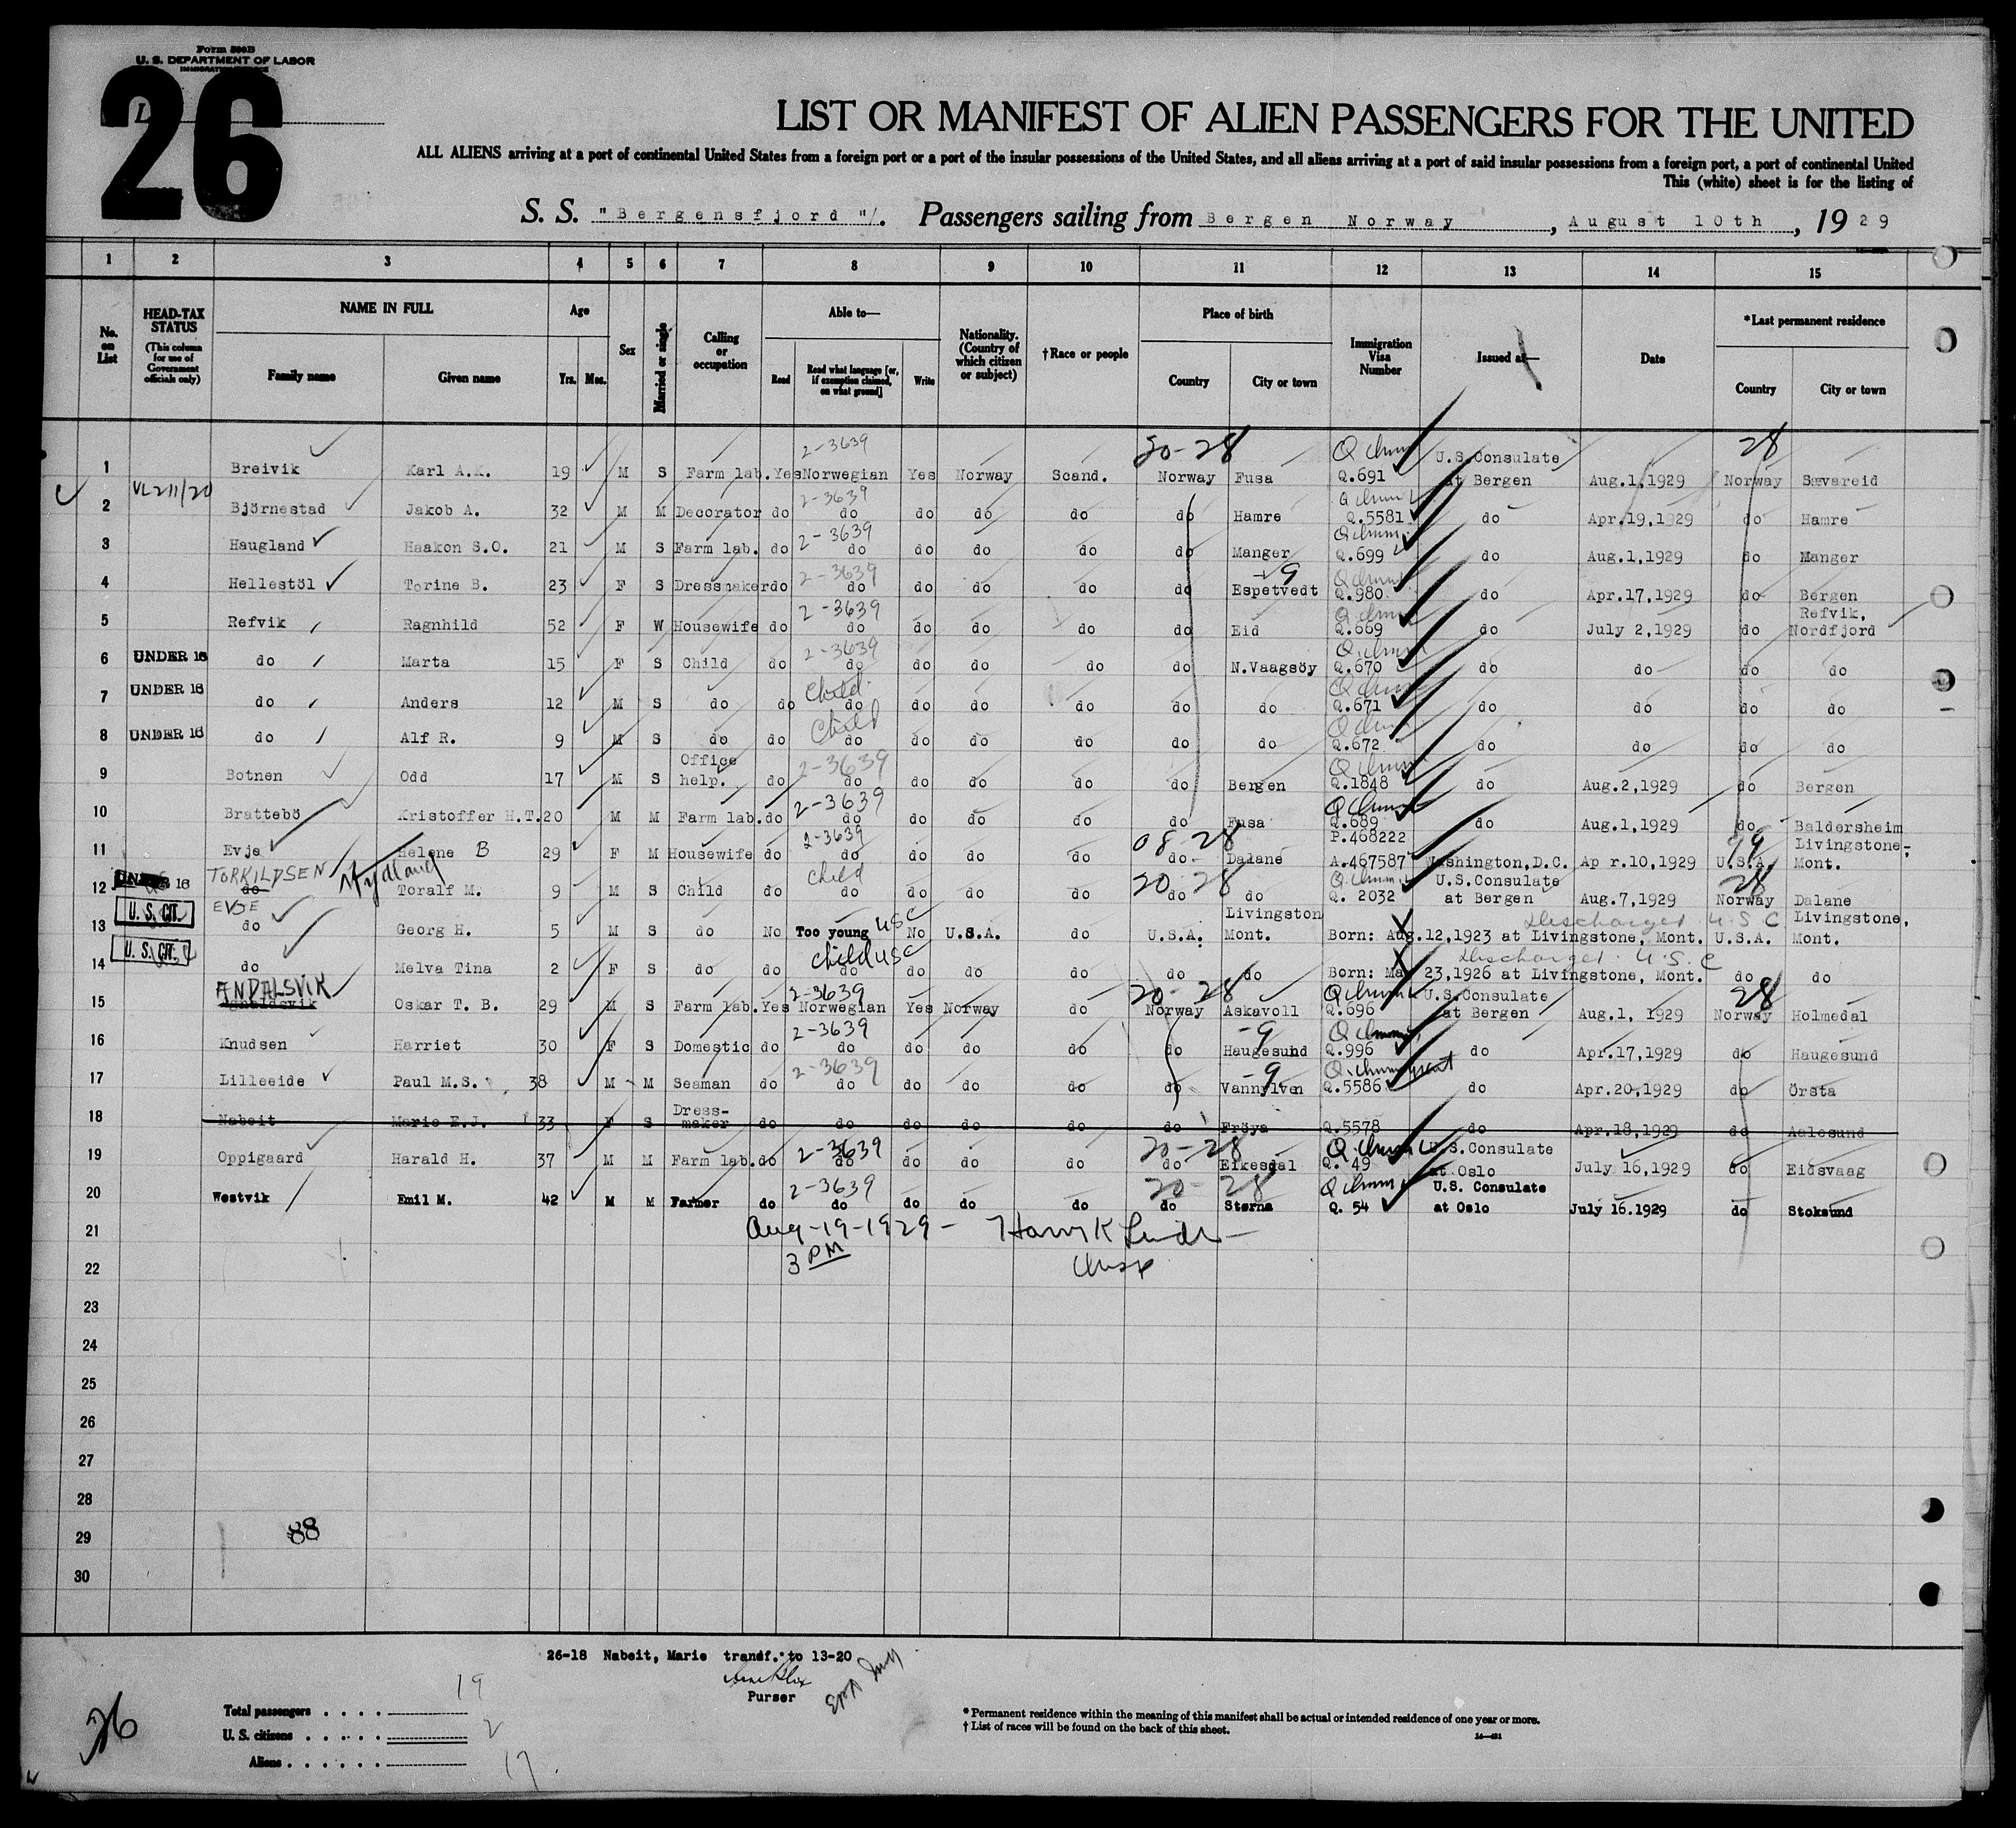 Form 500B
U. S. DEPARTMENT OF LABOR
26
LIST OR MANIFEST OF ALIEN PASSENGERS FOR THE UNITED
ALL ALIENS arriving at a port of continental United States from a foreign port or a port of the insular possessions of the United States, and all aliens arriving at a port of said insular possessions from a foreign port, a port of continental United
This (white) sheet is for the listing of
S. S. "Bergensfjord"/. Passengers sailing from Bergen Norway, August 10th, 1929
1 2 3 4 5 6 7 8 9 10 11 12 13 14 15
No. on List
HEAD-TAX STATUS (This column for use of Government officials only)
NAME IN FULL
Family name Given name
Age
Yrs. Mos.
Sex
Married or single
Calling or occupation
Able to—
Read Read what language [or, if exemption claimed, on what ground] Write
Nationality. (Country of which citizen or subject)
†Race or people
Place of birth
Country City or town
Immigration Visa Number
Issued at—
Date
*Last permanent residence
Country City or town
1 Breivik Karl A.K. 19 M S Farm lab. Yes 2-3639 Norwegian Yes Norway Scand. 20-28 Norway Fusa Q.691 U.S.Consulate at Bergen Aug.1,1929 28 Norway Sævareid
2 Björnestad Jakob A. 32 M M Decorator do 2-3639 do do do do do Hamre Q.5581 do Apr.19,1929 do Hamre
3 Haugland Haakon S.O. 21 M S Farm lab. do 2-3639 do do do do do Manger Q.699 do Aug.1,1929 do Manger
4 Hellestöl Torine B. 23 F S Dressmaker do 2-3639 do do do do do 9 Espetvedt Q.980 do Apr.17,1929 do Bergen
5 Refvik Ragnhild 52 F W Housewife do 2-3639 do do do do do Eid Q.669 do July 2,1929 do Refvik, Nordfjord
6 UNDER 16 do Marta 15 F S Child do 2-3639 do do do do do N.Vaagsöy Q.670 do do do do
7 UNDER 16 do Anders 12 M S do do Child do do do do do do Q.671 do do do do
8 UNDER 16 do Alf R. 9 M S do do Child do do do do do do Q.672 do do do do
9 Botnen Odd 17 M S Office help. do 2-3639 do do do do do Bergen Q.1848 do Aug.2,1929 do Bergen
10 Brattebö Kristoffer H.T. 20 M M Farm lab. do 2-3639 do do do do do Fusa Q.689 do Aug.1,1929 do Baldersheim
11 Evje Helene B 29 F M Housewife do 2-3639 do do do do 08-28 do Dalane P.468222 A.467587 Washington,D.C. Apr.10,1929 99 U.S.A. Livingstone, Mont.
12 16 TORKILDSEN do Mydland Toralf M. 9 M S Child do Child do do do do 20-28 do do Q. 2032 U.S.Consulate at Bergen Aug.7,1929 28 Norway Dalane
13 U. S. CIT. EVJE do Georg H. 5 M S do No Too young USC No U.S.A. do U.S.A. Livingston Mont. Born: Aug.12,1923 at Livingstone, Mont. Discharged U S C U.S.A. Livingstone, Mont.
14 U. S. CIT. do Melva Tina 2 F S do do Child USC do do do do do do Born: May 23,1926 at Livingstone, Mont. Discharged U.S.C do do
15 ANDALSVIK Oskar T. B. 29 M S Farm lab. Yes 2-3639 Norwegian Yes Norway do 20-28 Norway Askavoll Q.696 U.S.Consulate at Bergen Aug.1, 1929 28 Norway Holmedal
16 Knudsen Harriet 30 F S Domestic do 2-3639 do do do do do -9 Haugesund Q.996 do Apr.17,1929 do Haugesund
17 Lilleeide Paul M.S. 38 M M Seaman do 2-3639 do do do do do -9 Vannylven Q.5586 do Apr.20,1929 do Örsta
18 Nabeit Marie E.J. 33 F S Dress-maker do do do do do do Fröya Q.5578 do Apr.18,1929 do Aalesund
19 Oppigaard Harald H. 37 M M Farm lab. do 2-3639 do do do do 20-28 do Eikesdal Q. 49 U.S.Consulate at Oslo July 16,1929 do Eidsvaag
20 Westvik Emil M. 42 M M Farmer do 2-3639 do do do do 20-28 do Sterna Q. 54 U.S. Consulate at Oslo July 16.1929 do Stoksund
21 Aug-19-1929-
22 3 PM
23
24
25
26
27
28
29 88
30
26-18 Nabeit, Marie transf. to 13-20
Purser
26
Total passengers . . . . 19
U. S. citizens . . . . . 2
Aliens . . . . . . 17
* Permanent residence within the meaning of this manifest shall be actual or intended residence of one year or more.
† List of races will be found on the back of this sheet.